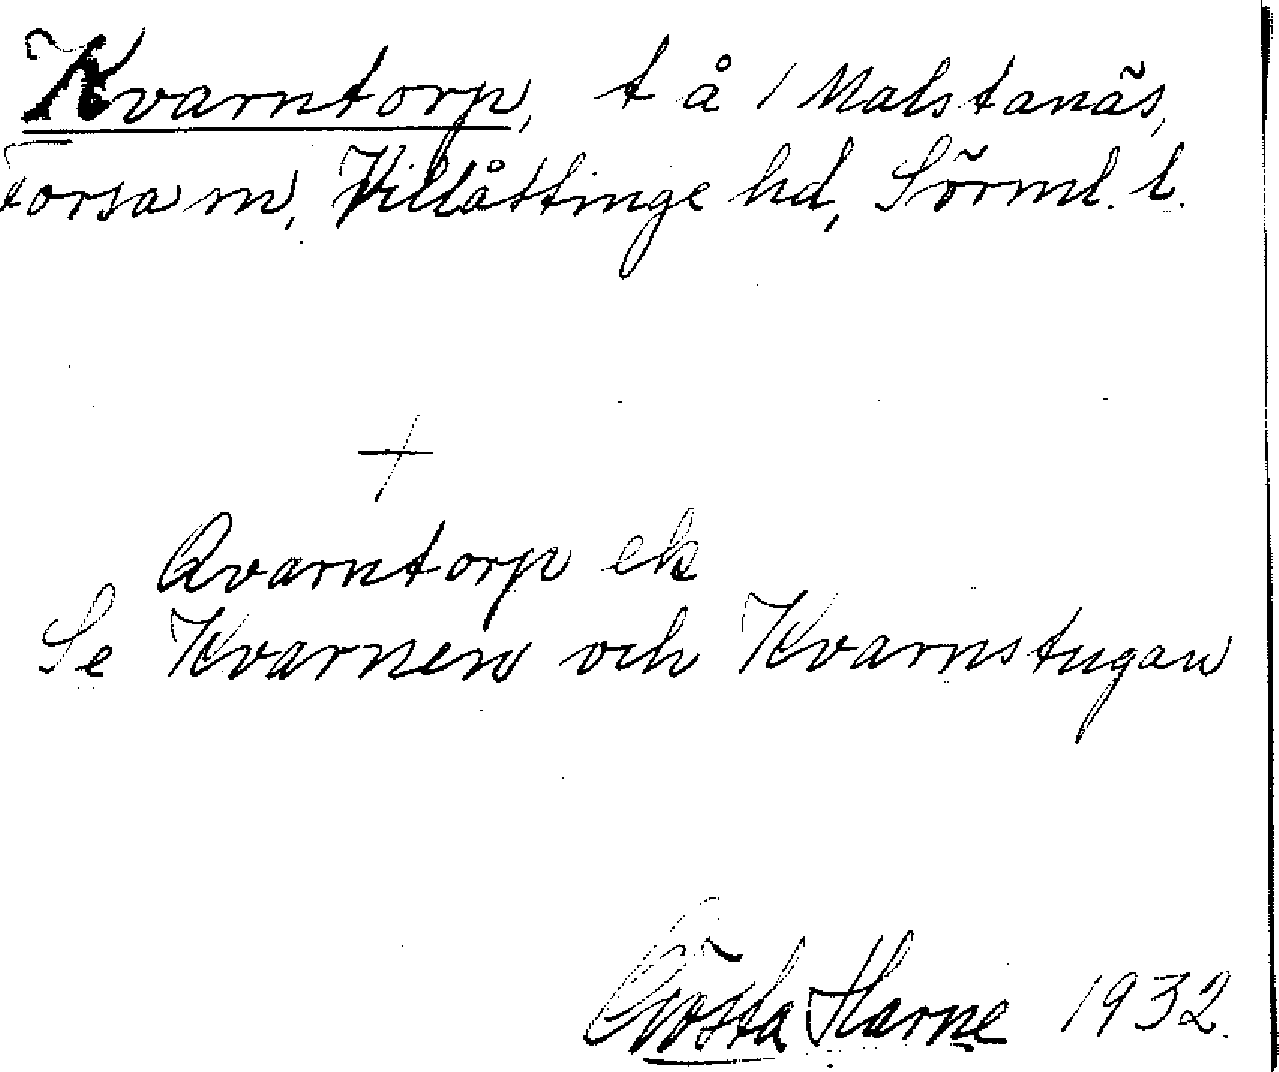 Kvarntorp, t å / Malstanäs,
Forsa sn, Villåttinge hd, Sörml. l.
+
Qvarntorp ek
Se Kvarnen och Kvarnstugan
Gösta Harne 1932.